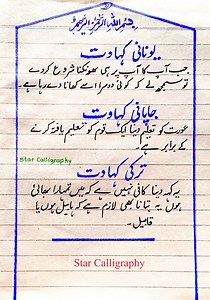 بسم اللہ الرحمن الرحیم
یونانی کہاوت
جب آپ کا آپ پر ہی بھونکنا شروع کر دے
تو سمجھ لے کہ کوئی دوسرا اسے کھانا دے رہا ہے۔
جاپانی کہاوت
عورت کو تعلیم دینا ایک قوم کو تعلیم یافتہ کرنے
کے برابر ہے۔
Star Calligraphy
ترکی کہاوت
یہ کہہ دینا کافی نہیں ہے کہ میں تمہارا بھائی
ہوں یہ بتانا بھی لازم ہے کہ ہابیل ہوں یا
قابیل۔
Star Calligraphy